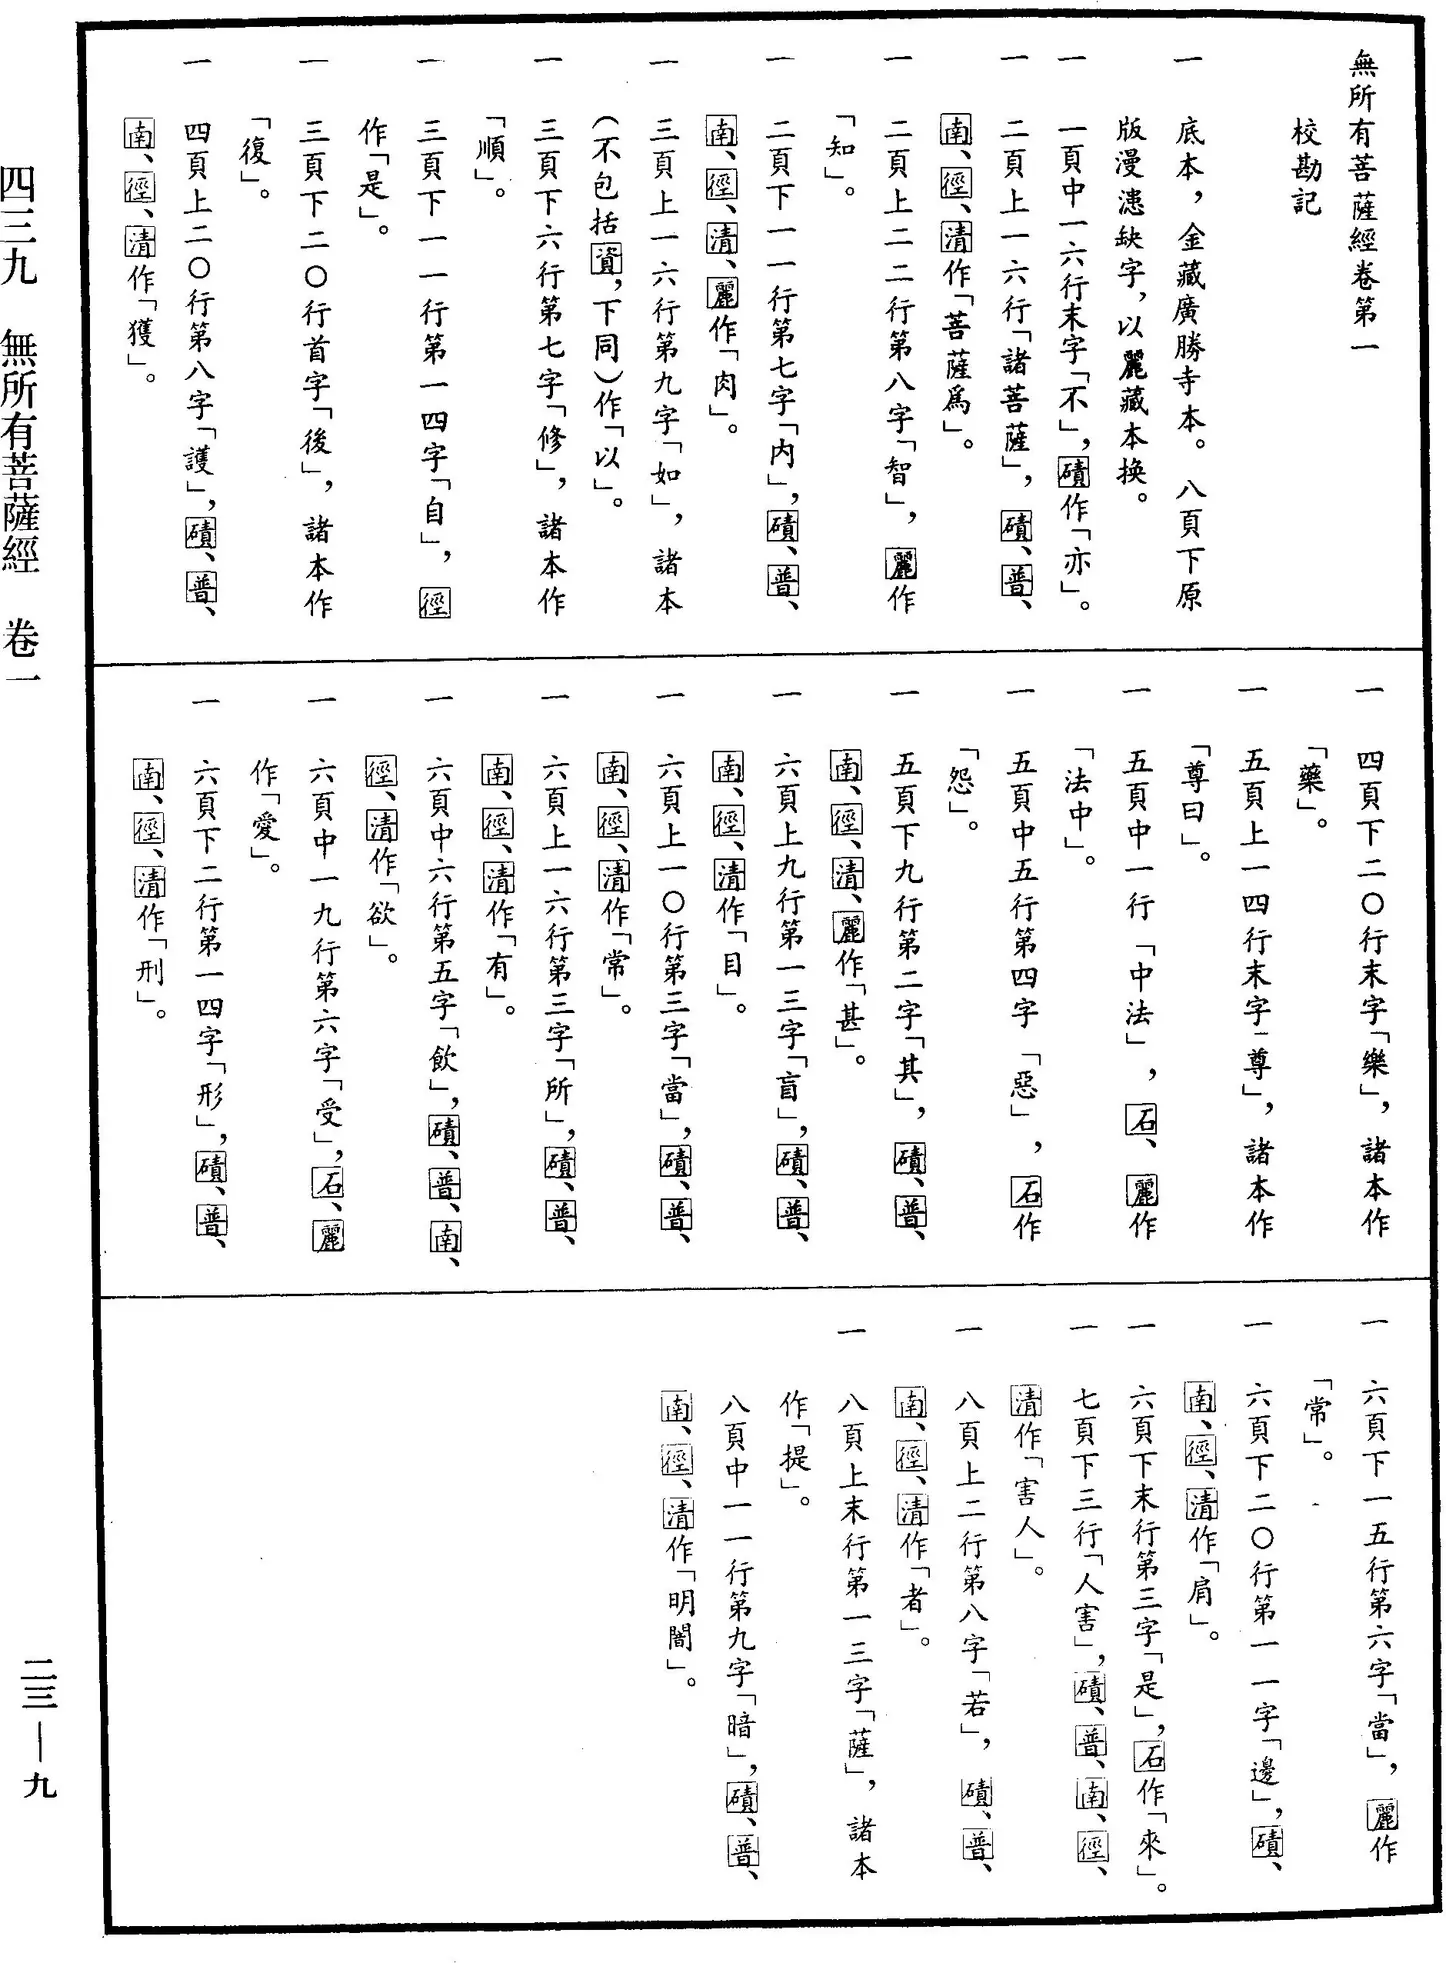 無所有菩薩經卷第一
校勘記
一　底本，金藏廣勝寺本。八頁下原
版漫漶缺字，以麗藏本换。
一　一頁中一六行末字「不」，磧作「亦」。
一　二頁上一六行「諸菩薩」，磧、普、
南、徑、清作「菩薩爲」。
一　二頁上二二行第八字「智」，麗作
「知」。
一　二頁下一一行第七字「内」，磧、普、
南、徑、清、麗作「肉」。
一　三頁上一六行第九字「如」，諸本
（不包括資，下同）作「以」。
一　三頁下六行第七字「修」，諸本作
「順」。
一　三頁下一一行第一四字「自」，徑
作「是」。
一　三頁下二〇行首字「後」，諸本作
「復」。
一　四頁上二〇行第八字「護」，磧、普、
南、徑、清作「獲」。
一　四頁下二〇行末字「樂」，諸本作
「藥」。
一　五頁上一四行末字「尊」，諸本作
「尊曰」。
一　五頁中一行「中法」，石、麗作
「法中」。
一　五頁中五行第四字「惡」，石作
「怨」。
一　五頁下九行第二字「其」，磧、普、
南、徑、清、麗作「甚」。
一　六頁上九行第一三字「盲」，磧、普、
南、徑、清作「目」。
一　六頁上一〇行第三字「當」，磧、普、
南、徑、清作「常」。
一　六頁上一六行第三字「所」，磧、普、
南、徑、清作「有」。
一　六頁中六行第五字「飲」，磧、普、南、
徑、清作「欲」。
一　六頁中一九行第六字「受」，石、麗
作「愛」。
一　六頁下二行第一四字「形」，磧、普、
南、徑、清作「刑」。
一　六頁下一五行第六字「當」，麗作
「常」。
一　六頁下二〇行第一一字「邊」，磧、
南、徑、清作「肩」。
一　六頁下末行第三字「是」，石作「來」。
一　七頁下三行「人害」，磧、普、南、徑、
清作「害人」。
一　八頁上二行第八字「若」，磧、普、
南、徑、清作「者」。
一　八頁上末行第一三字「薩」，諸本
作「提」。
八頁中一一行第九字「暗」，磧、普、
南、徑、清作「明闇」。
四三九　無所有菩薩經　卷一
二三—九